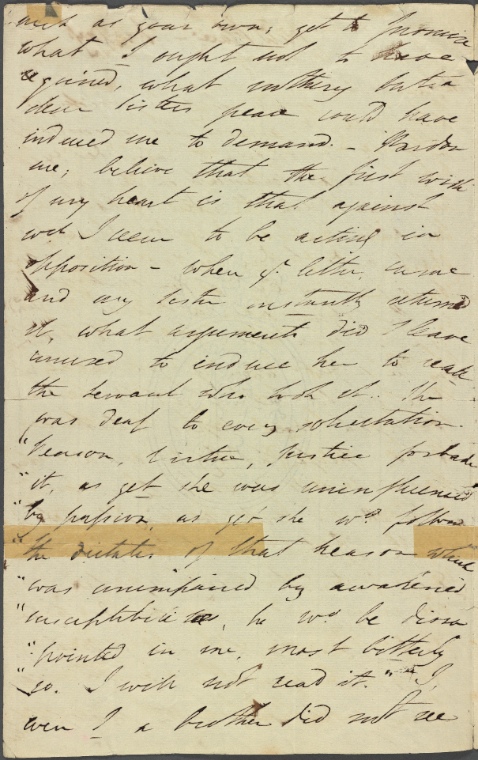 much as your own; yet to procure
what I ought not to have
required, what nothing but a
dear sisters peace could have
induced me to demand. - Pardon
me; believe that the first wish
of my heart is that against
wch I seem to be acting in
opposition - when yr. letter came
and my sister instantly returned
it, what arguments did I leave
unused to induce her to recall
the servant who took it. She
was deaf to every solicitation.
"Reason, virtue, justice forbade
"it, as yet she was uninfluenced
"by passion, as yet she wd. follow
"the dictates of that reason which
"was unimpaired by awakened
"susceptibilities, he wd. be disap
"pointed in me, most bitterly
"so. I will not read it." - I,
even I a brother did not see